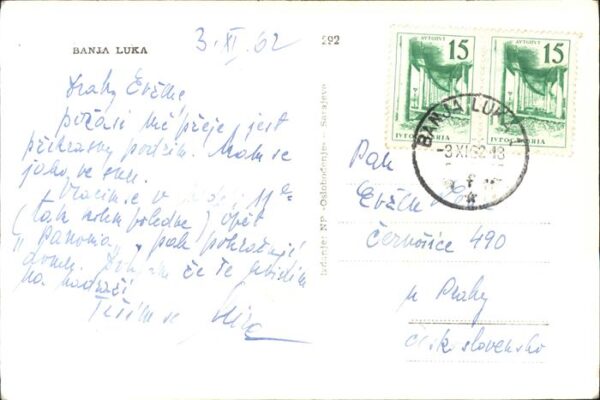 BANJA LUKA
3. XI. 62
292
Drahý Evžene,
počasí mě přeje, jest
překrásný podzim. Mám se
jako ve snu.
Vracím se v 11
(tak kolem poledne) opět
"Panonia", pak pokračuji
domů. že Tě uvidím
na nádraží
Těším se
Izdanje: NP „Oslobođenje" Sarajevo
AUTOPUT
15
JUGOSLAVIJA
AUTOPUT
15
JUGOSLAVIJA
BANJA LUKA
-3XI62-18
Pan
Evžen
Černošice 490
u Prahy
Československo